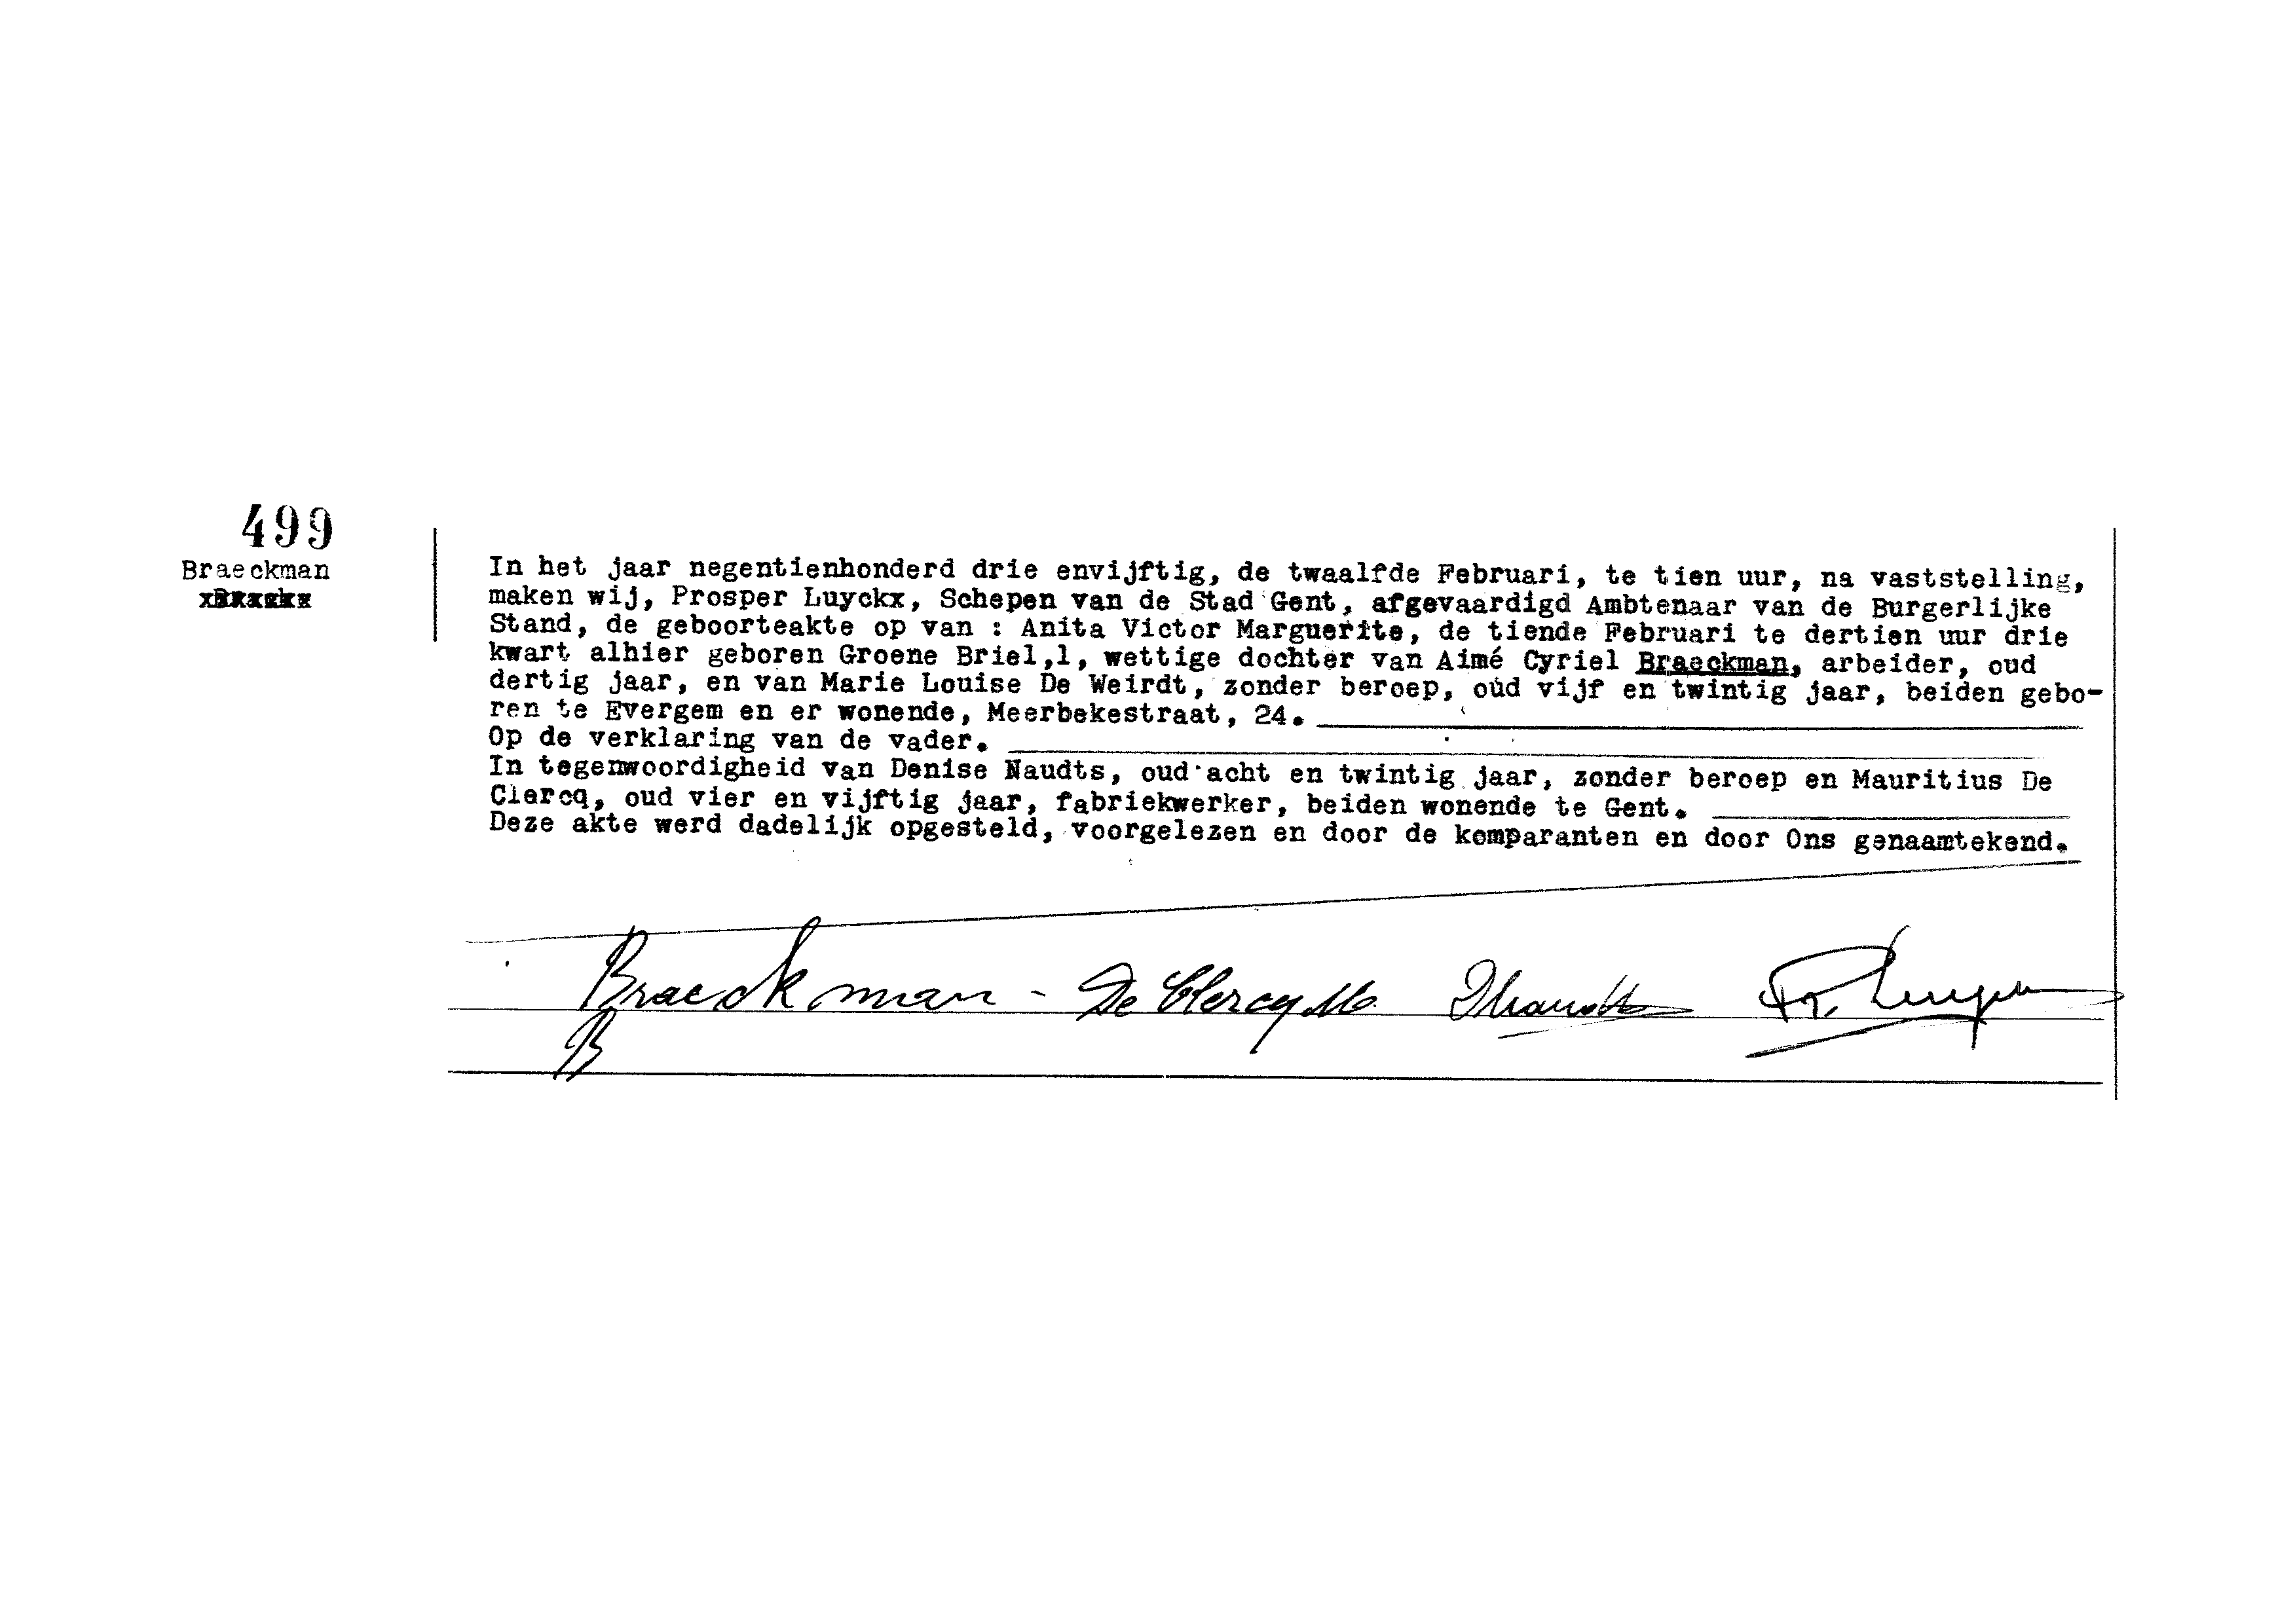 499
Braeckman
In het jaar negentienhonderd drie envijftig, de twaalfde Februari, te tien uur, na vaststelling,
maken wij, Prosper Luyckx, Schepen van de Stad Gent, afgevaardigd Ambtenaar van de Burgerlijke
Stand, de geboorteakte op van : Anita Victor Marguerite, de tiende Februari te dertien uur drie
kwart alhier geboren Groene Briel,1, wettige dochter van Aimé Cyriel Braeckman, arbeider, oud
dertig jaar, en van Marie Louise De Weirdt, zonder beroep, oud vijf en twintig jaar, beiden gebo-
ren te Evergem en er wonende, Meerbekestraat, 24.
Op de verklaring van de vader.
In tegenwoordigheid van Denise Naudts, oud acht en twintig jaar, zonder beroep en Mauritius De
Clercq, oud vier en vijftig jaar, fabriekwerker, beiden wonende te Gent.
Deze akte werd dadelijk opgesteld, voorgelezen en door de komparanten en door Ons genaamtekend.
Braeckman - De Clercq M. DNaudts
B